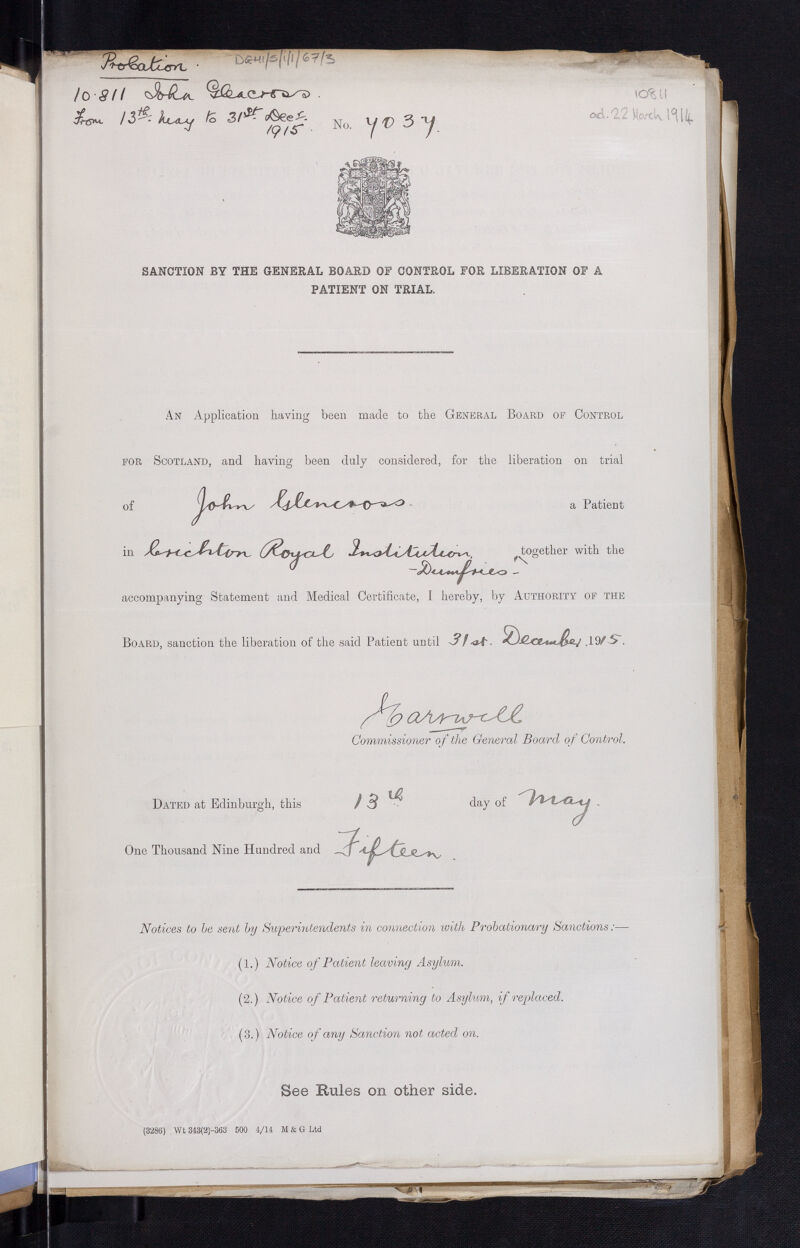 Probation. DGH1/5/1/1/67/3
10811 John Gleacross.
From 13th. May to 31st. Decr. 1915.
No. 7037.
10811
ad. 22 March 1914
SANCTION BY THE GENERAL BOARD OF CONTROL FOR LIBERATION OF A
PATIENT ON TRIAL.
AN Application having been made to the GENERAL BOARD OF CONTROL
FOR SCOTLAND, and having been duly considered, for the liberation on trial
of John Glencross. a Patient
in Crichton Royal Institution, together with the
-Dumfries-
accompanying Statement and Medical Certificate, I hereby, by AUTHORITY OF THE
BOARD, sanction the liberation of the said Patient until 31st. December 1915.
Carswell
Commissioner of the General Board of Control.
DATED at Edinburgh, this 13th day of May.
One Thousand Nine Hundred and Fifteen.
Notices to be sent by Superintendents in connection with Probationary Sanctions:—
(1.) Notice of Patient leaving Asylum.
(2.) Notice of Patient returning to Asylum, if replaced.
(3.) Notice of any Sanction not acted on.
See Rules on other side.
(3286) Wt 343(2)-363 500 4/14 M & G Ltd